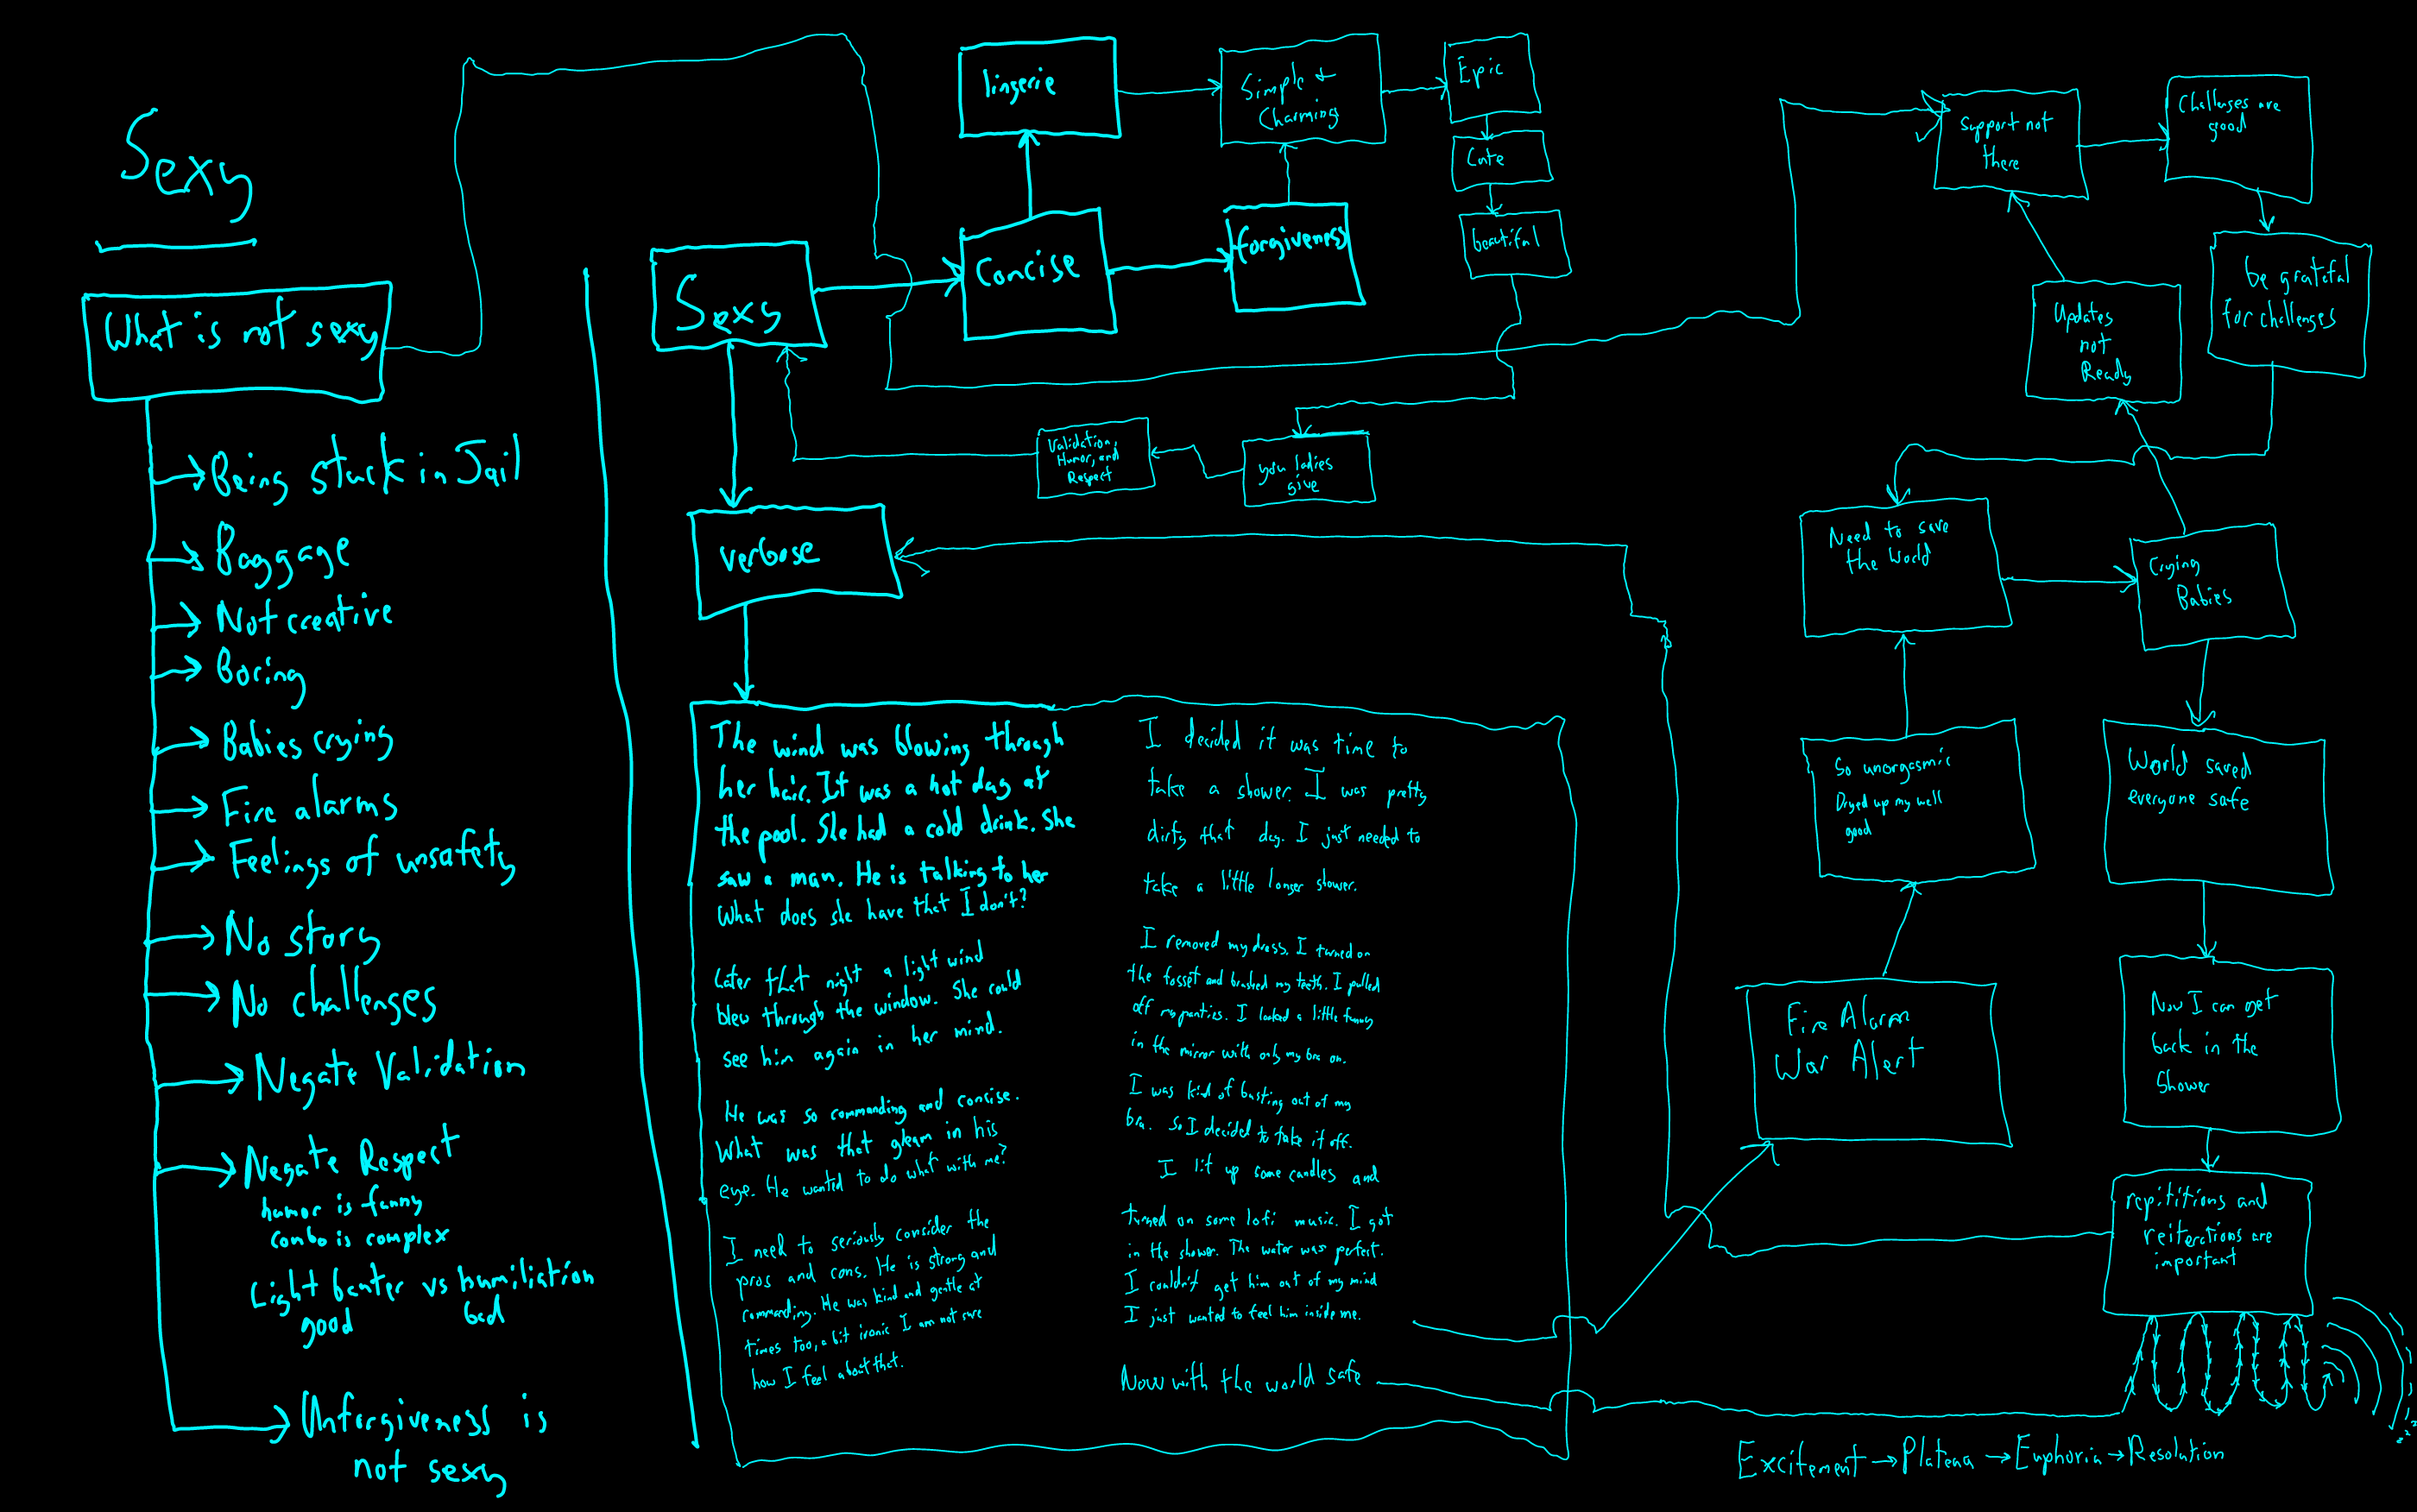 Sexy
What is not sexy
Being stuck in Jail
Baggage
Not creative
Boring
Babies crying
Fire alarms
Feelings of unsafety
No story
No challenges
Negate Validation
Negate Respect
humor is funny
combo is complex
Light banter vs humiliation
good bad
Unforgiveness is
not sexy
Sexy
Concise
lingerie
forgiveness
Simple +
Charming
Epic
Cute
beautiful
you ladies
give
Validation,
Humor, and
Respect
verbose
The wind was blowing through
her hair. It was a hot day at
the pool. She had a cold drink. She
saw a man. He is talking to her
What does she have that I don't?
Later that night a light wind
blew through the window. She could
see him again in her mind.
He was so commanding and concise.
What was that gleam in his
eye. He wanted to do what with me?
I need to seriously consider the
pros and cons. He is strong and
commanding. He was kind and gentle at
times too, a bit ironic I am not sure
how I feel about that.
I decided it was time to
take a shower. I was pretty
dirty that day. I just needed to
take a little longer shower.
I removed my dress. I turned on
the fosset and brushed my teeth. I pulled
off my panties. I looked a little funny
in the mirror with only my bra on.
I was kind of busting out of my
bra. So I decided to take it off.
I lit up some candles and
turned on some lofi music. I got
in the shower. The water was perfect.
I couldn't get him out of my mind
I just wanted to feel him inside me.
Now with the world safe
Fire Alarm
War Alert
So unorgasmic
Dryed up my well
good
Need to save
the World
Crying
Babies
Updates
not
Ready
Support not
there
Challenges are
good
be grateful
for challenges
World saved
everyone safe
Now I can get
back in the
Shower
repititions and
reiterations are
important
Excitement → Plateau → Euphoria → Resolution